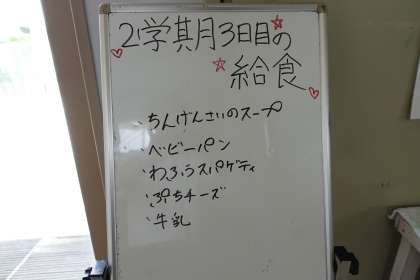 2学期月3日目の
給食
・ちんげんさいのスープ
・ベビーパン
・わふうスパゲティ
・ぷちチーズ
・牛乳